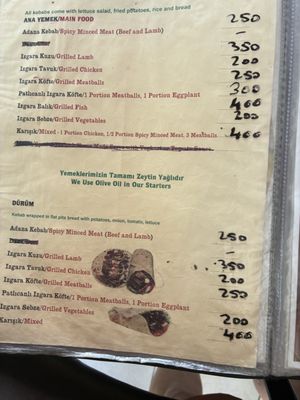 All kebabs come with lettuce salad, fried potatoes, rice and bread
ANA YEMEK/MAIN FOOD
Adana Kebab/Spicy Minced Meat (Beef and Lamb) 250
–
Izgara Kuzu/Grilled Lamb 350
Izgara Tavuk/Grilled Chicken 200
Izgara Köfte/Grilled Meatballs 250
Patlıcanlı Izgara Köfte/1 Portion Meatballs, 1 Portion Eggplant 300
Izgara Balık/Grilled Fish 400
Izgara Sebze/Grilled Vegetables 200
Karışık/Mixed - 1 Portion Chicken, 1/2 Portion Spicy Minced Meat, 3 Meatballs 400
Yemeklerimizin Tamamı Zeytin Yağlıdır
We Use Olive Oil in Our Starters
DÜRÜM
Kebab wrapped in flat pita bread with potatoes, onion, tomato, lettuce
Adana Kebab/Spicy Minced Meat (Beef and Lamb) 250
–
Izgara Kuzu/Grilled Lamb 350
Izgara Tavuk/Grilled Chicken 200
Izgara Köfte/Grilled Meatballs 250
Patlıcanlı Izgara Köfte/1 Portion Meatballs, 1 Portion Eggplant
Izgara Sebze/Grilled Vegetables 200
Karışık/Mixed 400